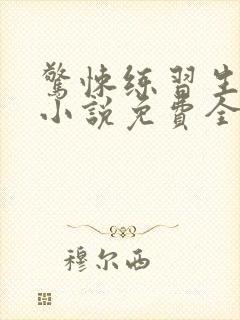 驚悚练習生
小說免費全
穆尔西